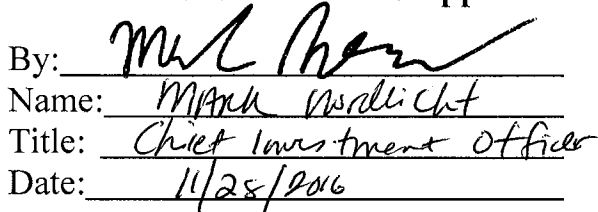 By:
Name: Mark Nordlicht
Title: Chief Investment Officer
Date: 11/28/2016